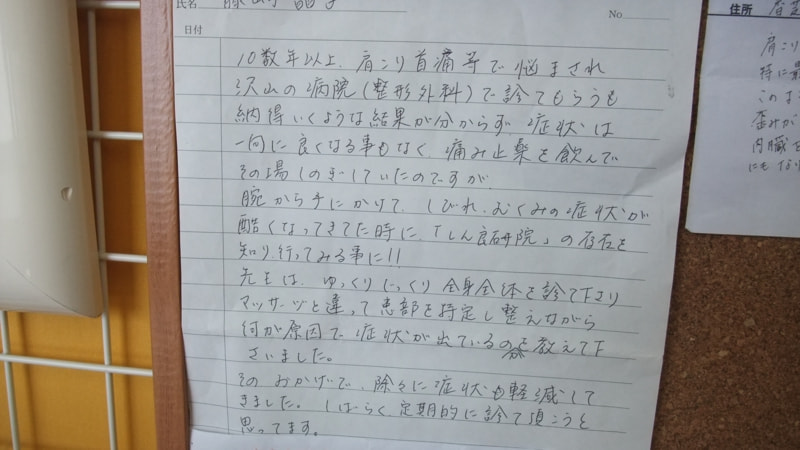 氏名
No.
日付
10数年以上、肩こり首痛等で悩まされ
沢山の病院(整形外科)で診てもらうも
納得いくような結果が分からず、症状は
一向に良くなる事もなく、痛み止薬を飲んで
その場しのぎしていたのですが、
腕から手にかけて、しびれ、むくみの症状が
酷くなってきてた時に、「しん良研院」の存在を
知り、行ってみる事に!!
先生は、ゆっくりじっくり全身全体を診て下さり
マッサージと違って患部を特定し整えながら
何が原因で症状が出ているのを教えて下
さいました。
そのおかげで、除々に症状も軽減して
きました。しばらく定期的に診て頂こうと
思ってます。
住所
肩こり
特に
このま
歪みが
内臓
にもな